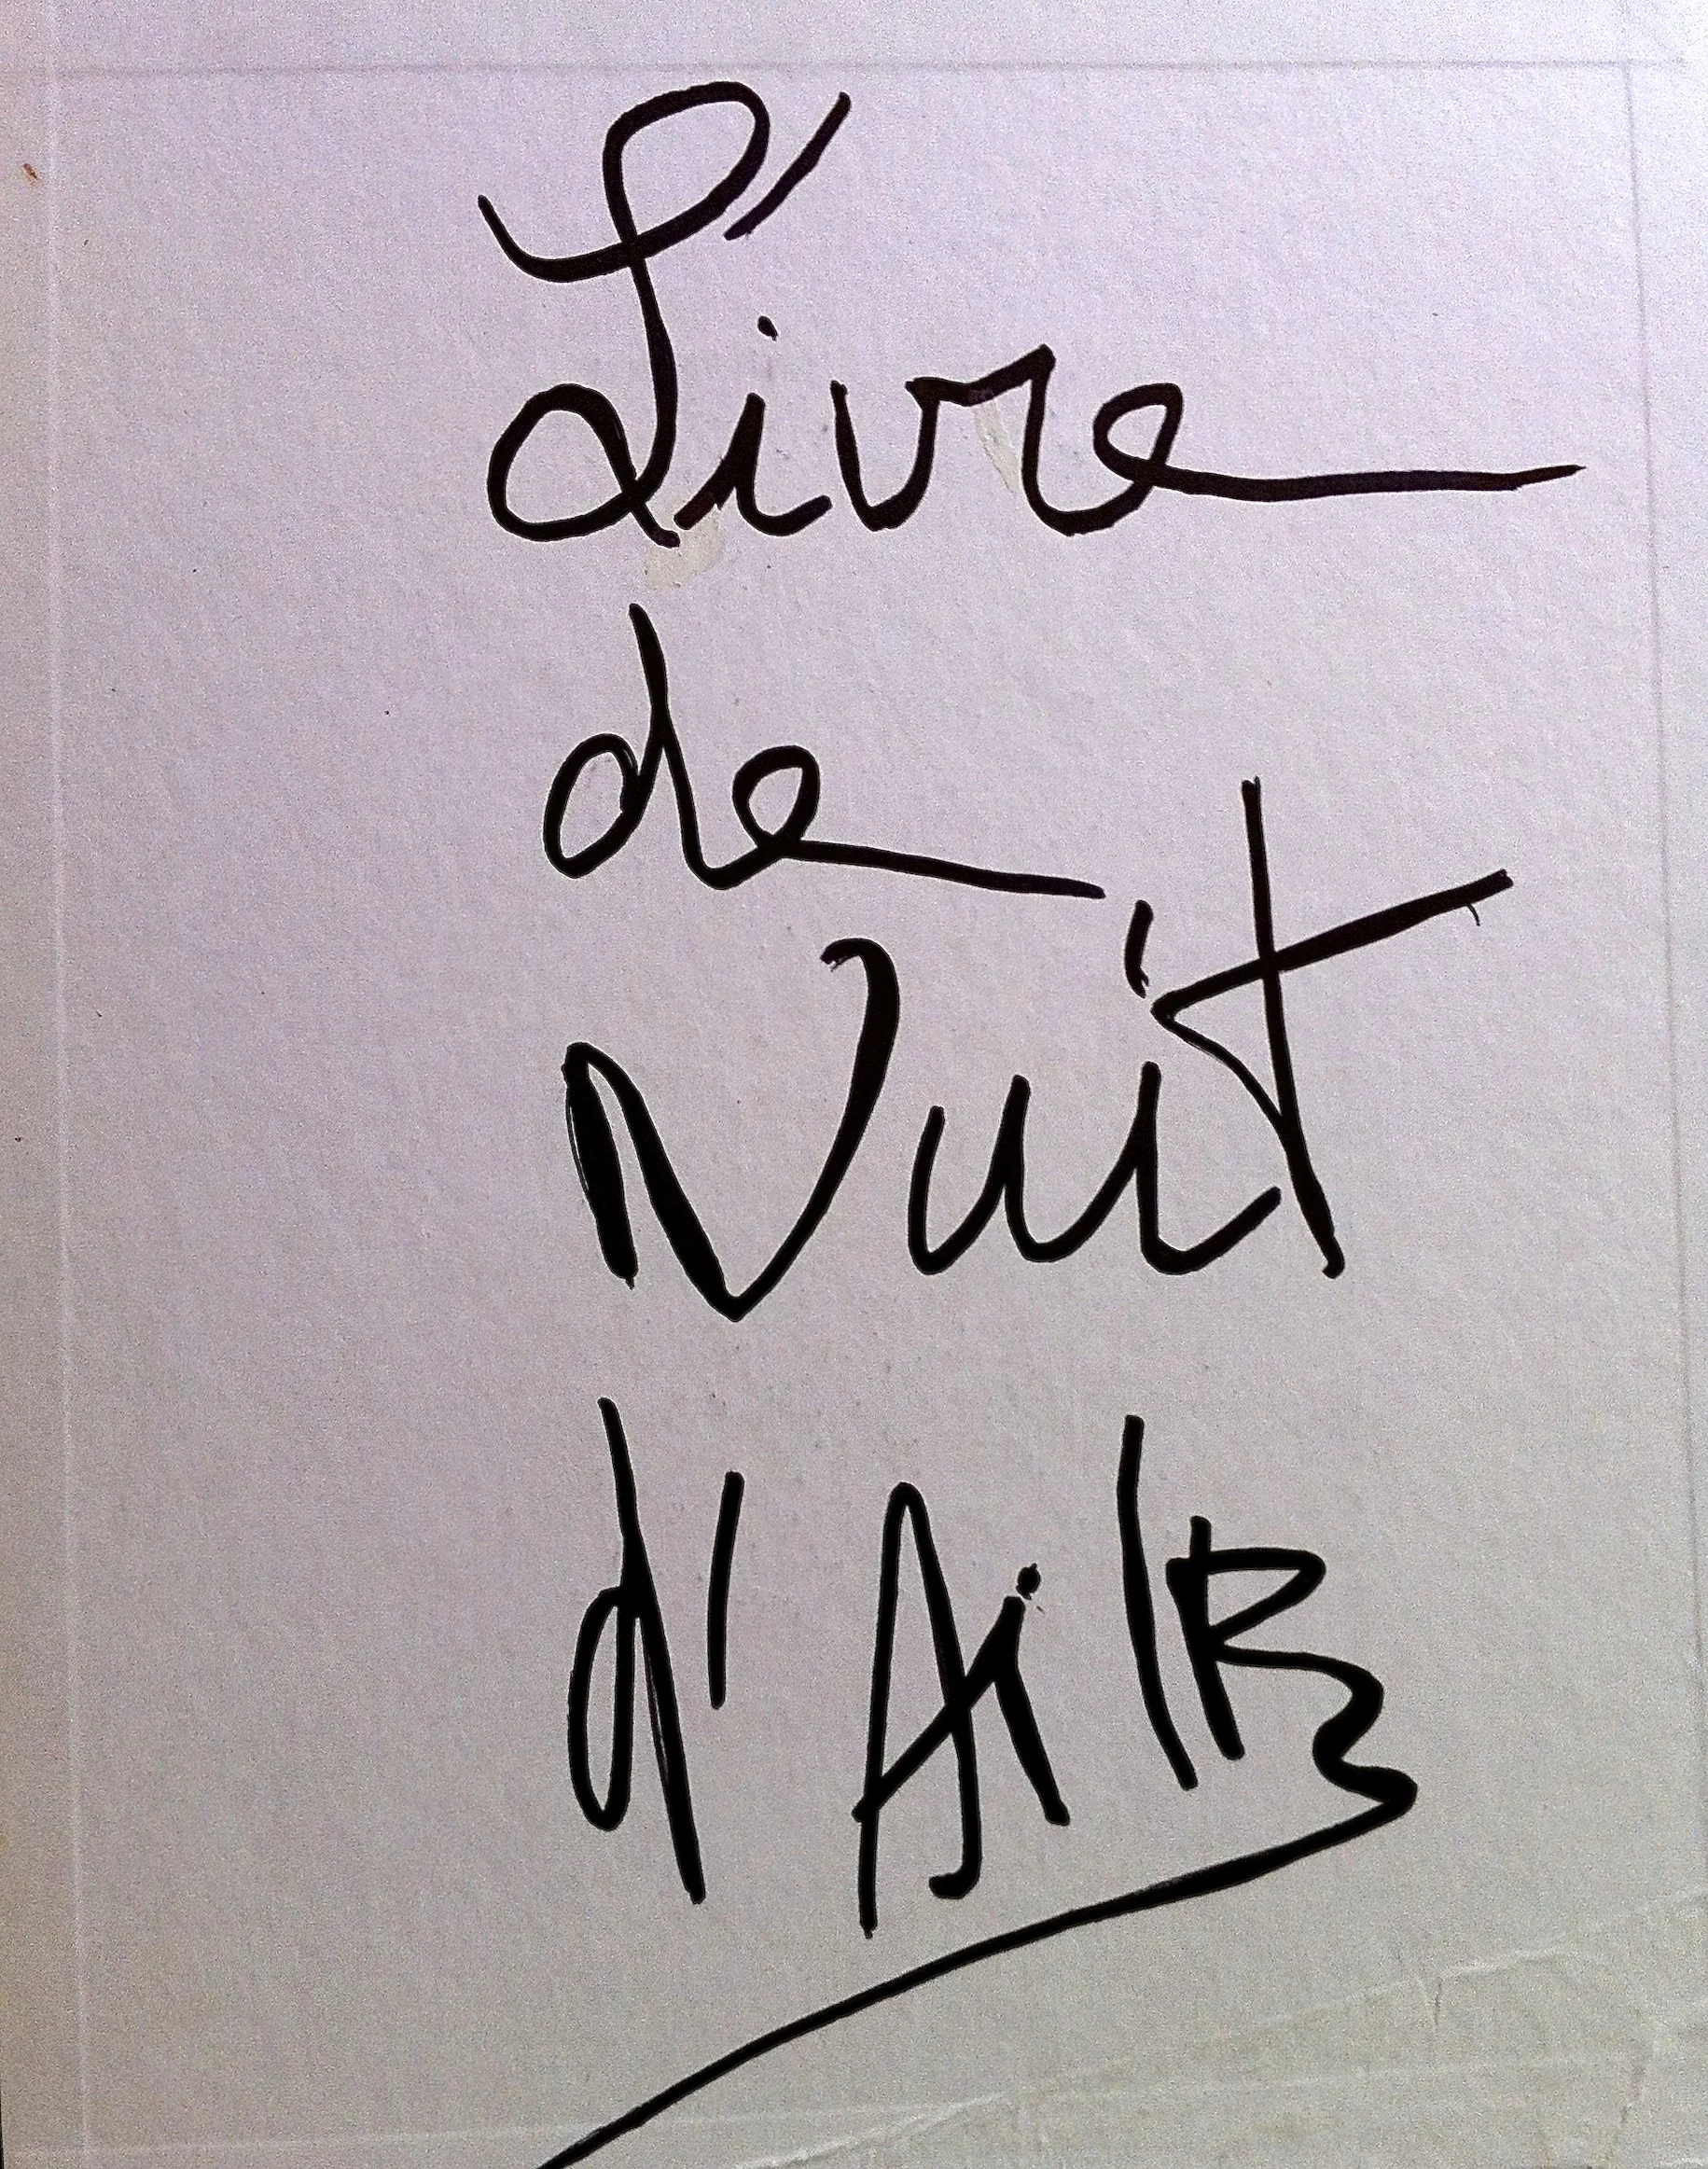 L'ivre
de
Nuit
d'AilR